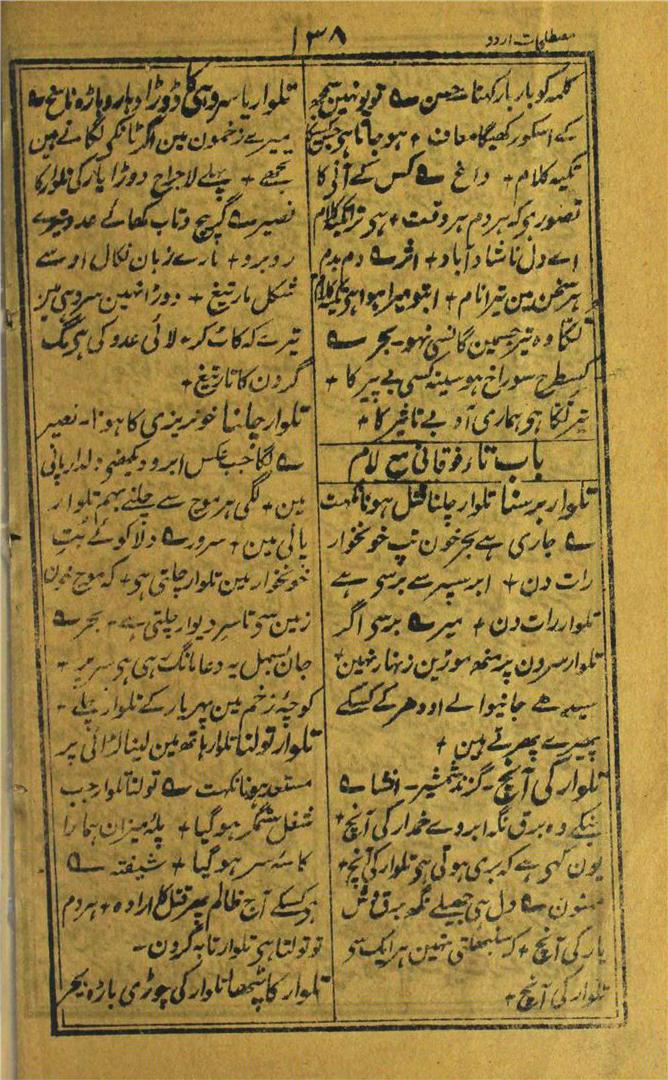 ۱۳۸
مصطلحات اردو
کلمہ کو بار بار کہنا حسن ؎ تو یونہین سمجھ
کے اسکو رکھیگا معاف + ہو جاتا ہی جیسیکا
تکیہ کلام + داغ ؎ کس کے آنی کا
تصور ہی کہ ہر دم ہر وقت + ہی ترا تکیہ کلام
اے دل ناشاد آباد + اثر ؎ دم بدم
ہر سخن مین تیرا نام + ابتو میرا ہوا ہی تکیہ کلام
تُکّا وہ تیر جسمین گانسی نہو۔ بحر ؎
کسطح سوراخ ہو سینہ کسی بے پیر کا +
تیر تُکّا ہی ہماری آہ بے تاثیر کا +
باب تاء فوقانی مع لام
تلوار برسنا تلوار چلنا قتل ہونا نکہت
؎ جاری ہے بحر خون تپ خونخوار
رات دن + ابر سپر سے برسی ہے
تلوار رات دن + میر ؎ برسی اگر
تلوار سرون پر منھ موڑین زنہار نہین +
سیدھے جانیوالے اودھر کے کسکے
پھیرے پھرتے ہین +
تلوار کی آنچ۔ گزند شمشیر۔ انشا ؎
وہ برق نگہ ابروے خمدار کی آنچ +
یون کہی ہے کہ بری ہوتی ہی تلوار کی آنچ +
ممنون ؎ دل ہی جھیلے نگہ برق وش
یار کی آنچ + کہ سنبھلتی نہین ہر ایک سے
تلوار کی آنچ +
تلوار یا سروہی کا ڈورا دہار و باڑہ ناسخ ؎
میرے زخمون مین اگر ٹانکی لگانے ہین
تجھے + پہلے لا جراح دورا یار کی تلوار کا
نصیر ؎ گر پیچ و تاب کھائے عدو تیرے
روبرو + مارے زبان نکال اوسے
شکل مار تیغ + دورا نہین سروہی مین
تیرے کہ کاٹ کر + لائی عدو کی ہی رگ
گردن کا تار تیغ +
تلوار چلنا خونریزی کا ہونا۔ نصیر
؎ لگا جب عکس ابرو دیکھنی دلدار پانی
مین + لگی ہر موج سے چلنے بہم تلوار
پانی مین + سرور ؎ دلا کوئے بُتِ
خونخوار مین تلوار چلتی ہی + کہ موج خون
زمین سی تا سر دیوار چلتی ہے۔ بحر ؎
جان بسمل یہ دعا مانگ رہی ہی سر پر +
کوچۂ زخم مین پھر یار کے تلوار چلے +
تلوار تولنا تلوار ہاتھ مین لینا لڑائی پر
مستعد ہونا نکہت ؎ تولنا تلوار جب
شغل ستمگر ہو گیا + پلۂ میزان ہمارا
کاسۂ سر ہو گیا + شیفتہ ؎
ہی کسکے آج ظالم پھر قتل کا ارادہ + ہر دم
تو تولتا ہی تلوار تا بگردن۔
تلوار کا پٹھا تلوار کی چوڑی باڑہ بحر